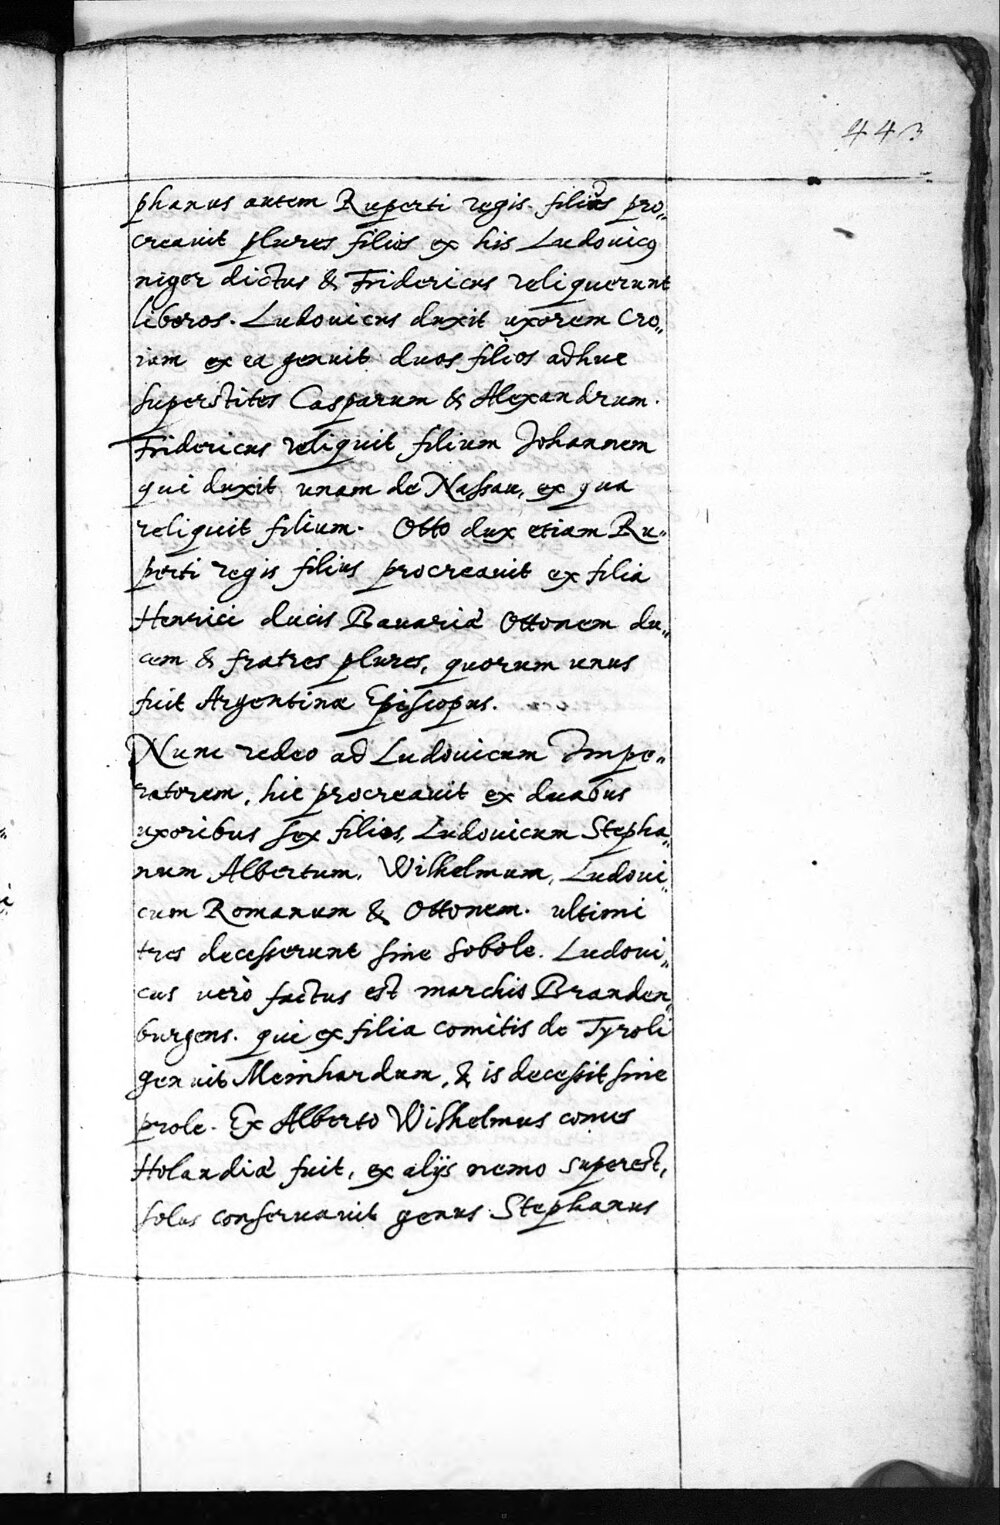 443
phanus autem Ruperti regis filius pro„
creauit plures filios ex his Ludouicꝰ
niger dictus & Fridericus reliquerunt
liberos. Ludouicus duxit uxorem Cro„
iam ex ea genuit duos filios adhuc
superstites Casparum & Alexandrum.
Fridericus reliquit filium Johannem
qui duxit unam de Nassau, ex qua
reliquit filium. Otto dux etiam Ru„
perti regis filius procreauit ex filia
Henrici ducis Bauariæ Ottonem du„
cem & fratres plures, quorum unus
fuit Argentinæ Episcopus.
Nunc redeo ad Ludouicum Impe„
ratorem, hic procreauit ex duabus
uxoribus sex filios, Ludouicum Stepha„
num Albertum, Wilhelmum, Ludoui„
cum Romanum & Ottonem. ultimi
tres decesserunt sine sobole. Ludoui„
cus verò factus est marchis Branden„
burgens. qui ex filia comitis de Tyroli
genuit Meinhardum, & is decessit sine
prole. Ex Alberto Wilhelmus comes
Holandiæ fuit, ex alijs nemo superest,
solus conseruauit genus Stephanus